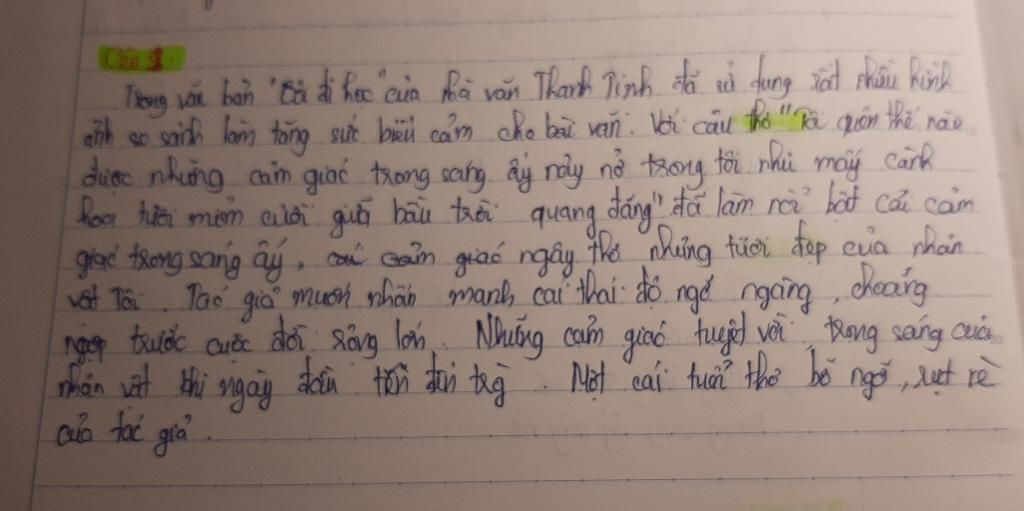 Câu 1.
Trong văn bản "Tôi đi học" của nhà văn Thanh Tịnh đã sử dụng rất nhiều hình
ảnh so sánh làm tăng sức biểu cảm cho bài văn. Với câu thơ "Tôi quên thế nào
được những cảm giác trong sang ấy nảy nở trong tôi như mấy cành
hoa tươi mỉm cười giữa bầu trời quang đãng" đã làm nổi bật cái cảm
giác trong sang ấy, cảm giác ngây thơ những tươi đẹp của nhân
vật Tôi. Tác giả muốn nhấn mạnh cai thai độ ngỡ ngàng, choáng
ngợp trước cuộc đời rộng lớn. Những cảm giác tuyệt vời trong sáng của
nhân vật khi ngày đầu tiên đến trg. Một cái tuổi thơ bỡ ngỡ, rụt rè
của tác giả.